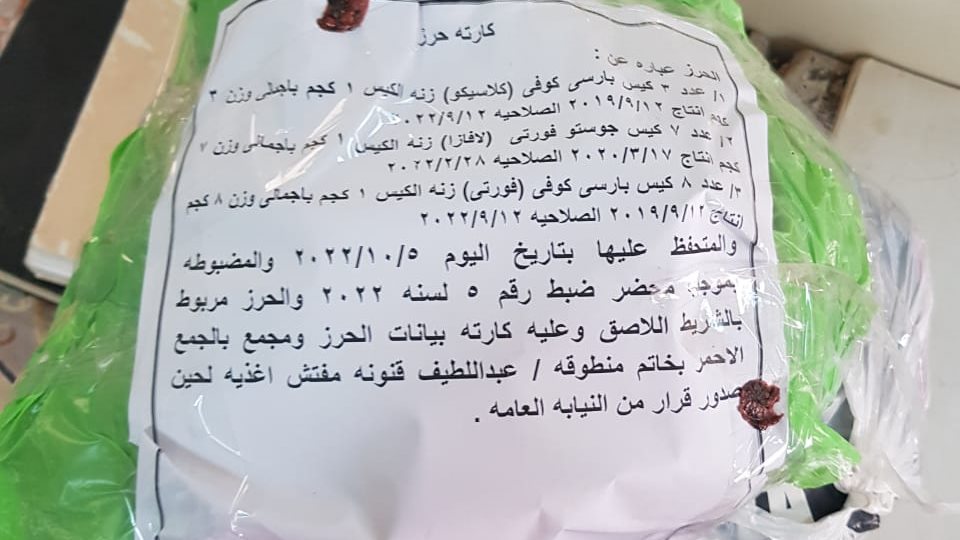 كارته حرز
الحرز عباره عن :
١/ عدد ٣ كيس بارسى كوفى (كلاسيكو) زنه الكيس ١ كجم باجمالى وزن ٣
كجم انتاج ٢٠١٩/٩/١٢ الصلاحيه ٢٠٢٢/٩/١٢
٢/ عدد ٧ كيس جوستو فورتى (لافازا) زنه الكيس ١ كجم باجمالى وزن ٧
كجم انتاج ٢٠٢٠/٣/١٧ الصلاحيه ٢٠٢٢/٢/٢٨
٣/ عدد ٨ كيس بارسى كوفى (فورتى) زنه الكيس ١ كجم باجمالى وزن ٨ كجم
انتاج ٢٠١٩/٩/١٢ الصلاحيه ٢٠٢٢/٩/١٢
والمتحفظ عليها بتاريخ اليوم ٢٠٢٢/١٠/٥ والمضبوطه
بموجب محضر ضبط رقم ٥ لسنه ٢٠٢٢ والحرز مربوط
بالشريط اللاصق وعليه كارته بيانات الحرز ومجمع بالجمع
الاحمر بخاتم منطوقه / عبداللطيف قنونه مفتش اغذيه لحين
صدور قرار من النيابه العامه .